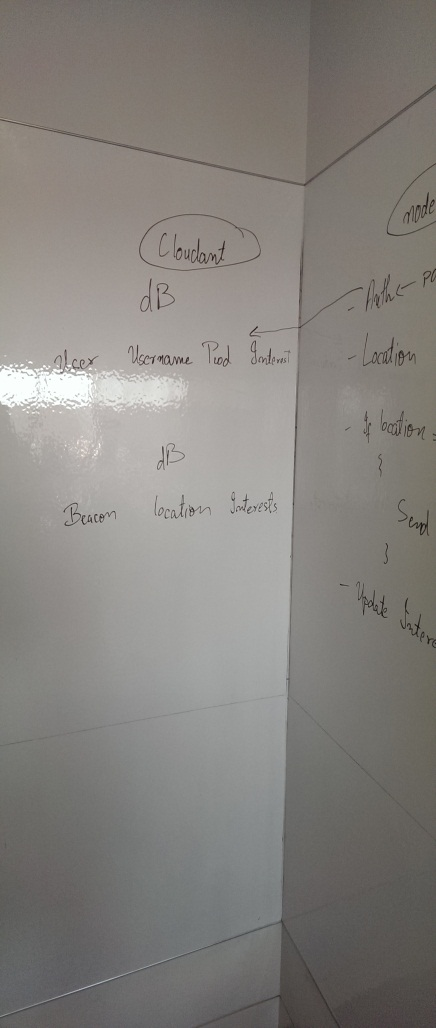 Cloudant
dB
User Username Interest
dB
Beacon location Interests
node
- Auth ←
- Location
- If location =
{
Send
}
- Update